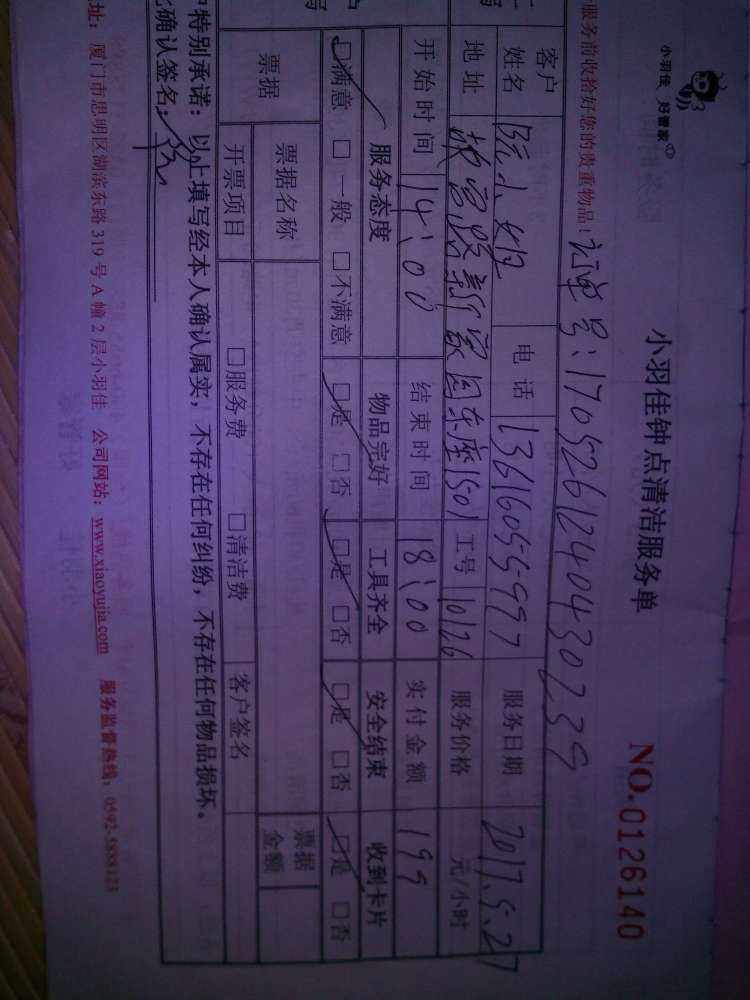 小羽佳 好管家
小羽佳钟点清洁服务单
NO.0126140
服务前收拾好您的贵重物品！
订单号:170526124043023
客户姓名 阮小姐 电话 13616055997 服务日期 2017.5.27
地址 新家园东座1501 工号 10126 服务价格 元/小时
开始时间 14:00 结束时间 18:00 实付金额 199
服务态度 物品完好 工具齐全 安全结束 收到卡片
☑满意 □一般 □不满意 ☑是 □否 ☑是 □否 ☑是 □否 ☑是 □否
票据 票据名称 票据金额
开票项目 □服务费 □清洁费 客户签名
特别承诺：以上填写经本人确认属实，不存在任何纠纷，不存在任何物品损坏。
确认签名：
址：厦门市思明区湖滨东路 319 号 A 幢 2 层小羽佳 公司网站：www.xiaoyujia.com 服务监督热线：0592-5888123